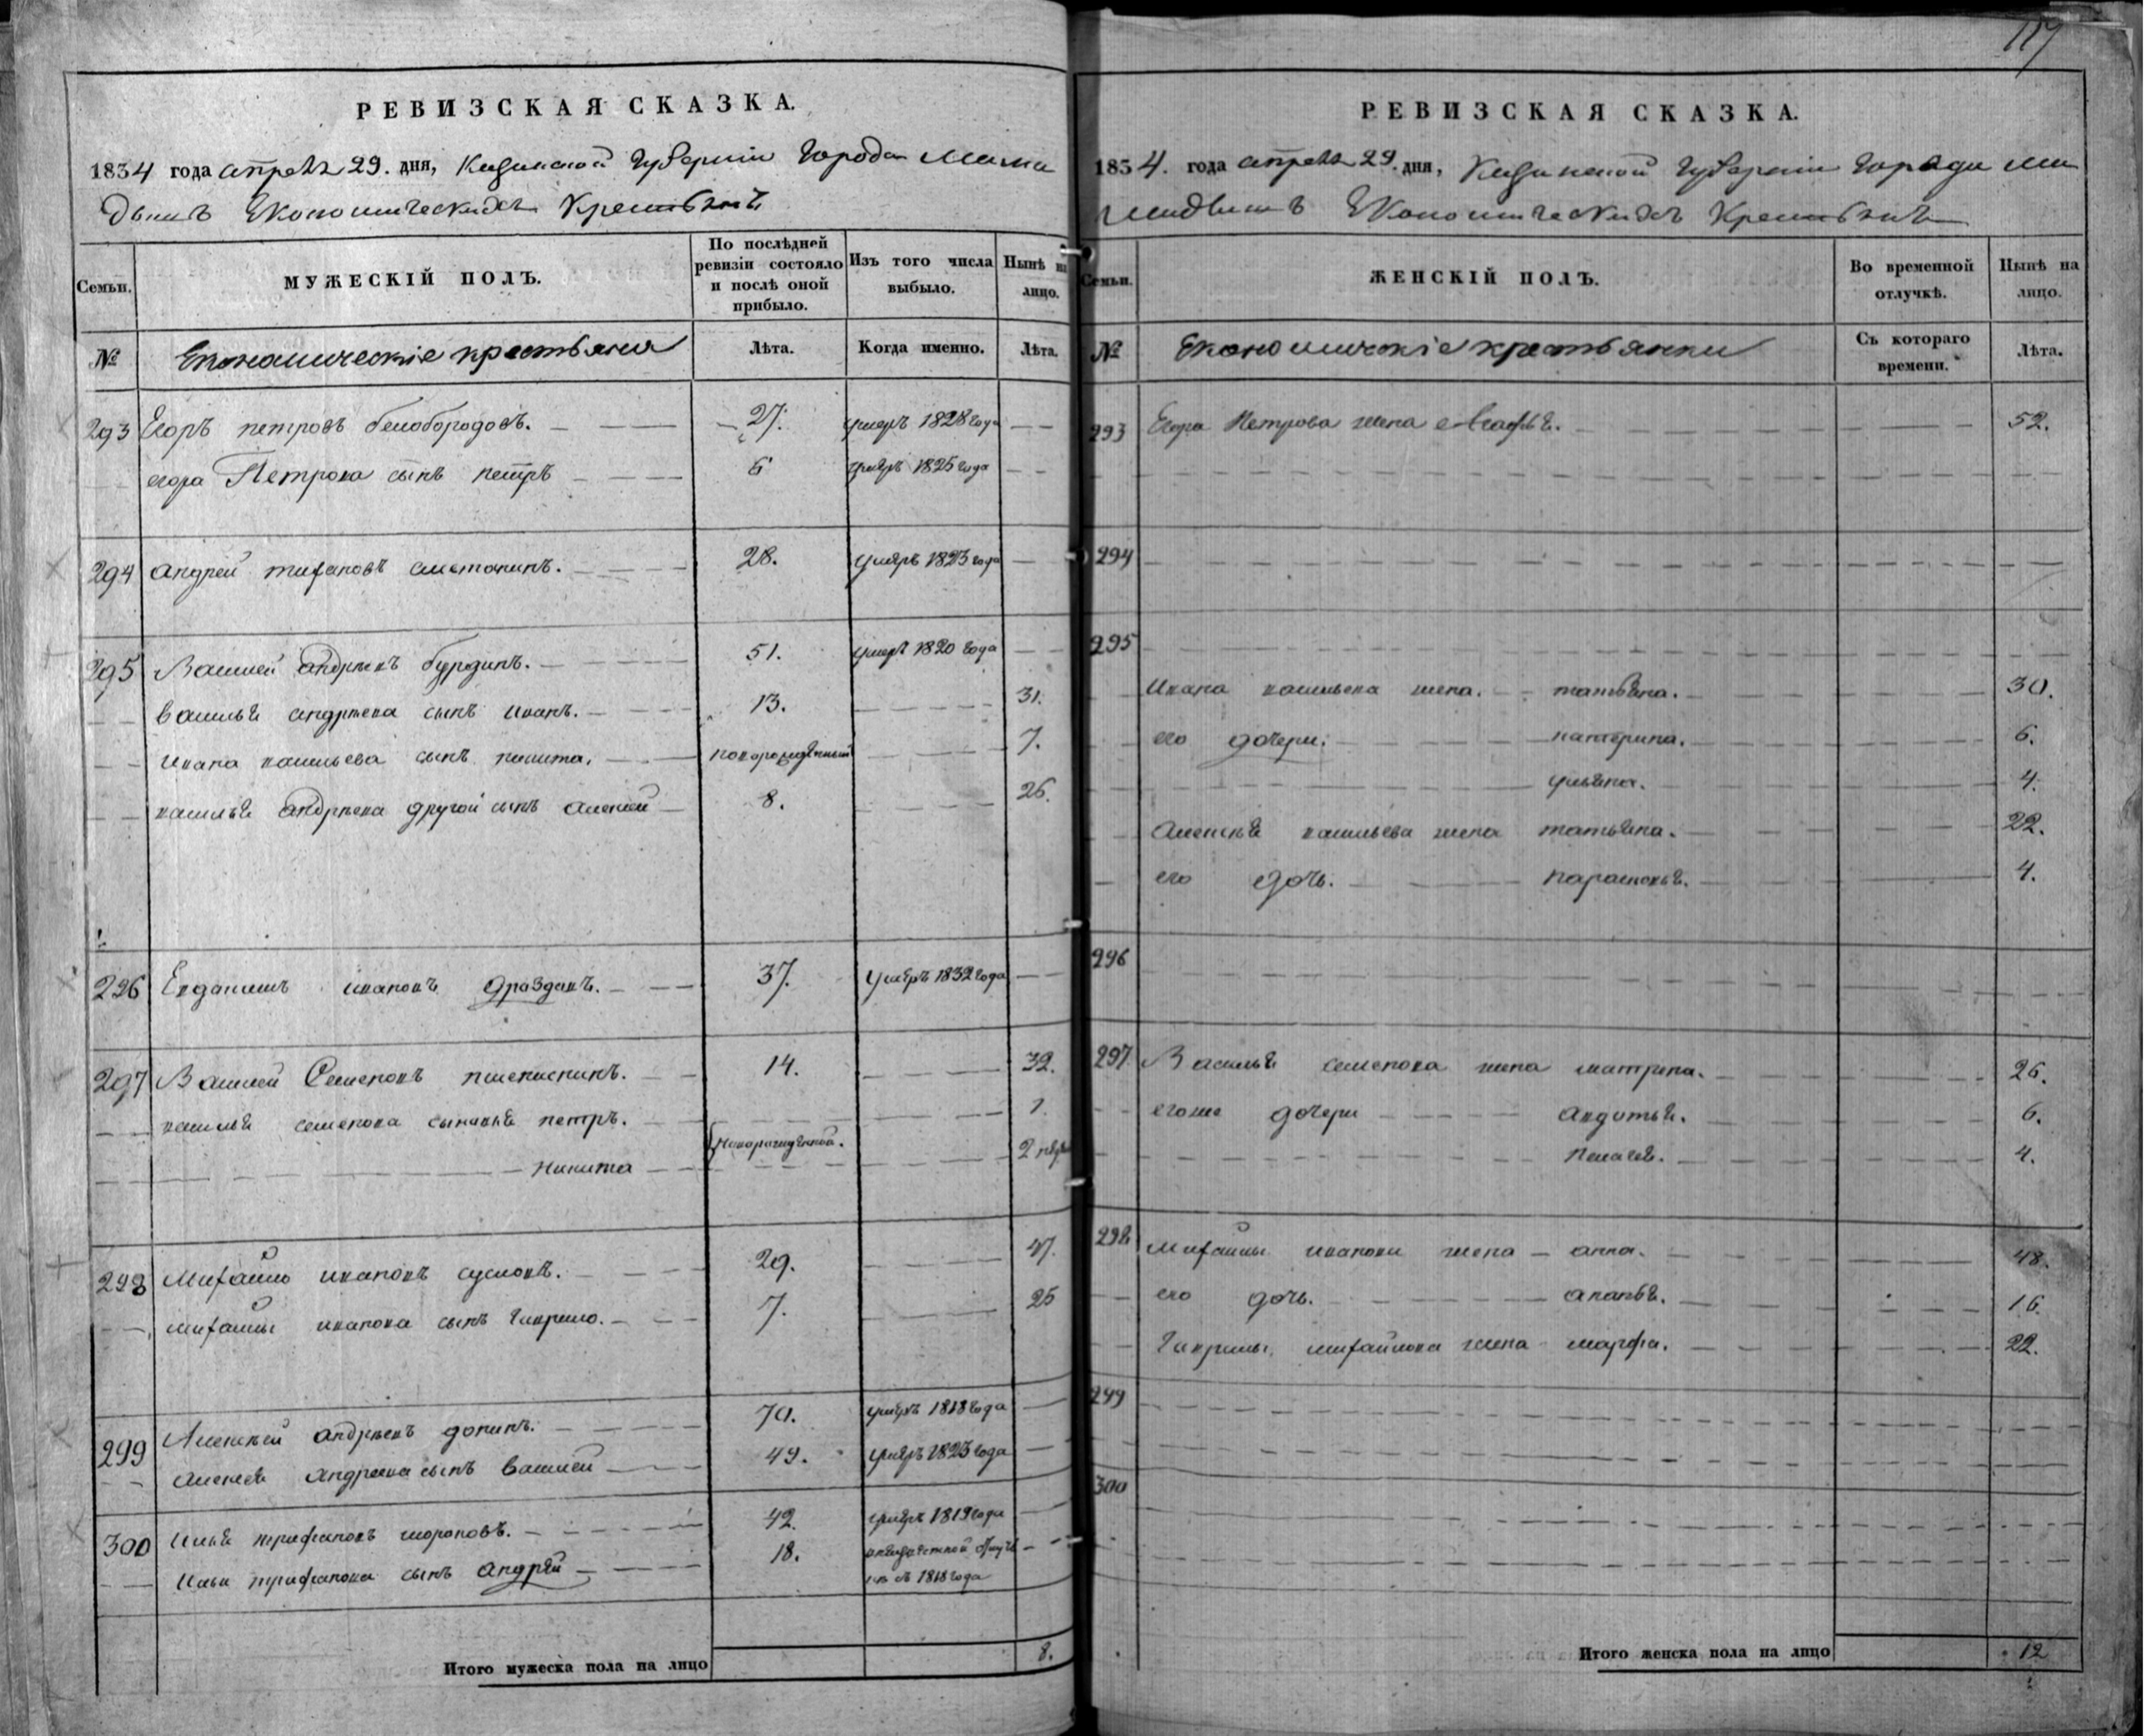 119
РЕВИЗСКАЯ СКАЗКА.
1834 года апреля 29. дня, Казанской Губернiи Города Мама
дышъ Економическихъ Крестьянъ
Семьи.
МУЖЕСКІЙ ПОЛЪ.
По послѣдней ревизіи состояло и послѣ оной прибыло.
Изъ того числа выбыло.
Нынѣ на лицо.
№
Економическіе крестьяня
Лѣта.
Когда именно.
Лѣта.
293 Егоръ петровъ белобородовъ. 27. умеръ 1828 года
егора Петрова сынъ петръ 6 умеръ 1825 года
294 андрей тифановъ сметанинъ. 28. умеръ 1823 года
295 Василей андреевъ бурдинъ. 51. умеръ 1820 года
василья андреева сынъ иванъ. 13. 31.
ивана васильева сынъ никита. новорожденный 7.
василья андреева другой сынъ алексей 8. 26.
296 Евдакимъ ивановъ драздовъ. 37. умеръ 1832 года
297 Василей Семеновъ пшенишнинъ. 14. 32.
василья семенова сыновья петръ. 7.
никита новорожденной. 2
298 Михайло ивановъ сусловъ. 29. 47.
михайлы иванова сынъ гаврило. 7. 25
299 Алексей андреевъ донинъ. 70. умеръ 1818 года
алексея андреева сынъ василей 49. умеръ 1823 года
300 илья трифановъ 42. умеръ 1819 года
ильи трифанова сынъ андрей 18. въ
съ 1818 года
Итого мужеска пола на лицо 8.
РЕВИЗСКАЯ СКАЗКА.
1834. года апреля 29. дня, Казанской Губернiи Города Ма
мадышъ Економическихъ Крестьянъ
Семьи.
ЖЕНСКІЙ ПОЛЪ.
Во временной отлучкѣ.
Нынѣ на лицо.
№
Економическіе крестьянки
Съ котораго времени.
Лѣта.
293 Егора Петрова жена агафья. 52.
294
295
Ивана васильева жена. татьяна. 30.
его дочери. катерина. 6.
ульяна. 4.
алексея васильева жена татьяна. 22.
его дочь. парасковья. 4.
296
297 Василья семенова жена матрена. 26.
егоже дочери авдотья. 6.
пелагея. 4.
298 Михайлы иванова жена анна. 48.
его дочь. 16.
Гаврилы михайлова жена марфа. 22.
299
300
Итого женска пола на лицо 12